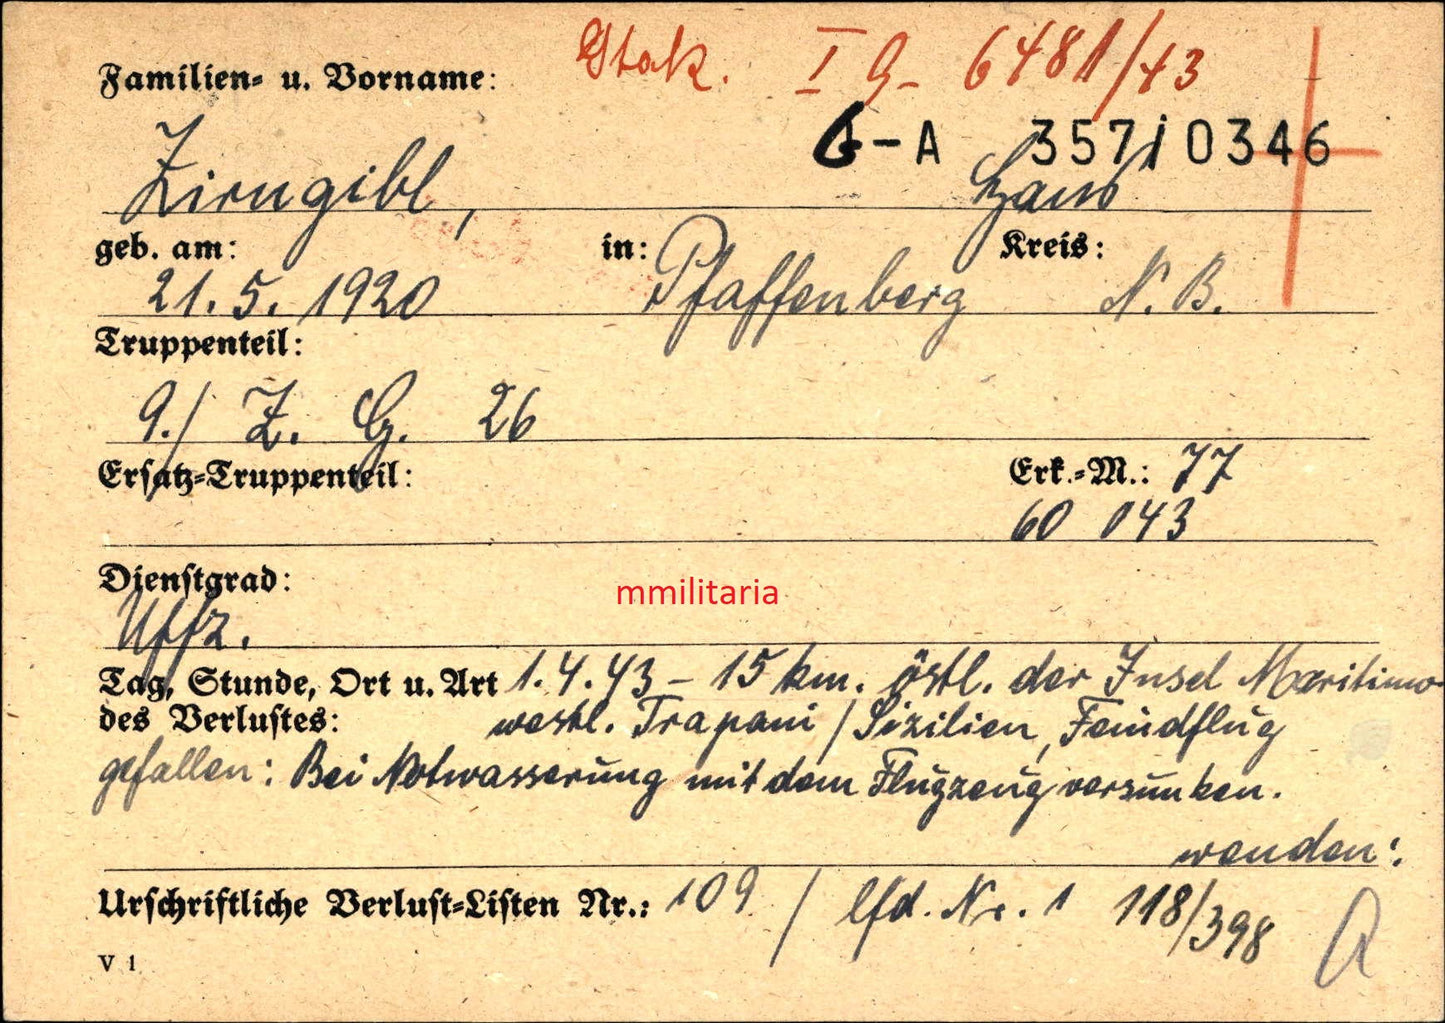 Stak. I 9- 6481/43
Familien- u. Vorname:
G-A 357/0346
Zirngibl, Hans
geb. am: in: Kreis:
21. 5. 1920 Pfaffenberg N. B.
Truppenteil:
9./ Z. G. 26
Ersatz-Truppenteil: Erk.-M.: 77
60 043
Dienstgrad:
mmilitaria
Uffz.
Tag, Stunde, Ort u. Art 1. 4. 43 - 15 km. östl. der Insel Maritimo
des Verlustes: westl. Trapani / Sizilien, Feindflug
gefallen: Bei Notwasserung mit dem Flugzeug versunken.
wenden!
Urschriftliche Verlust-Listen Nr.: 109 / lfd. Nr. 1 118/398
V 1